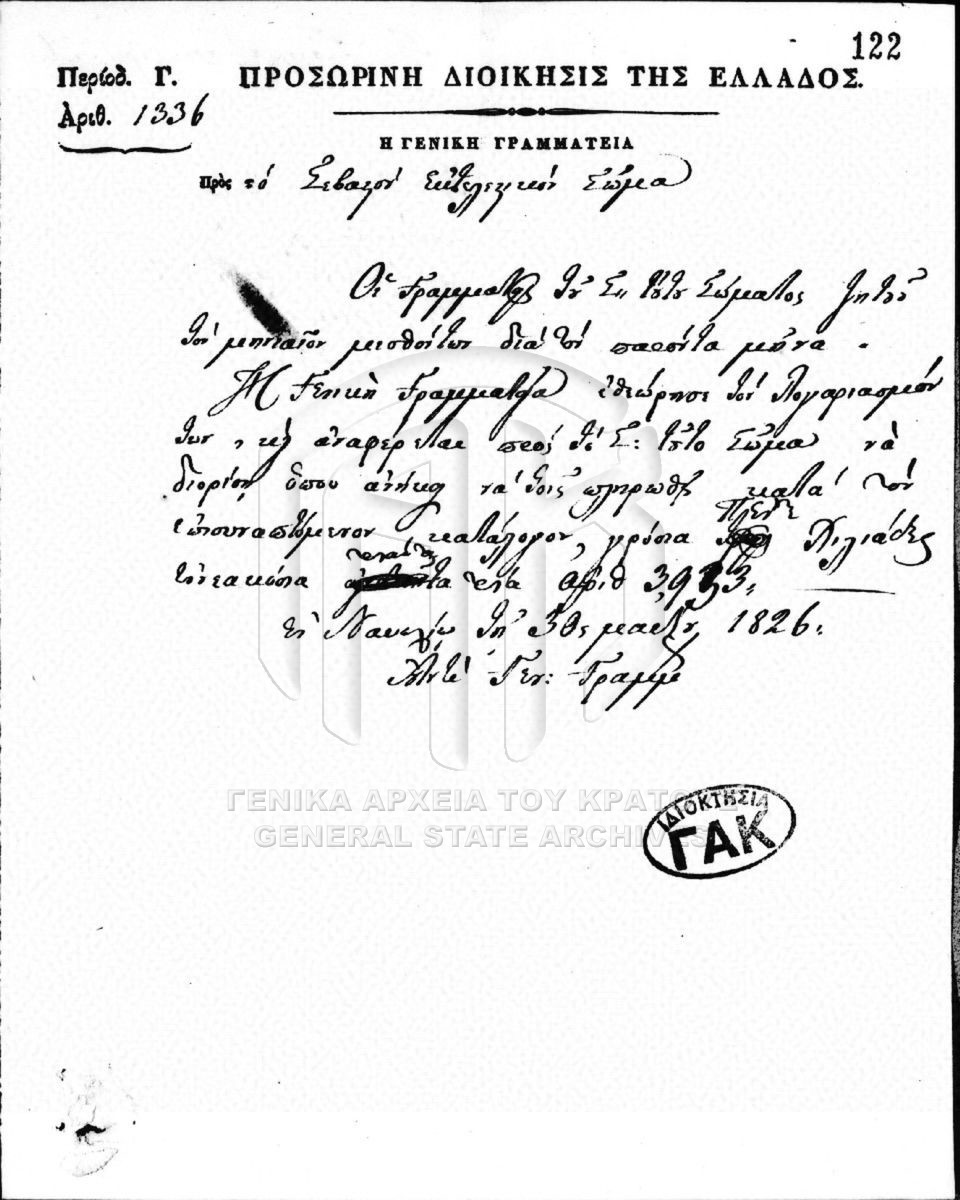 122
Περίοδ. Γ. ΠΡΟΣΩΡΙΝΗ ΔΙΟΙΚΗΣΙΣ ΤΗΣ ΕΛΛΑΔΟΣ.
Ἀριθ. 1336
Η ΓΕΝΙΚΗ ΓΡΑΜΜΑΤΕΙΑ
Πρὸς τὸ Σεβαστὸν Ἐκτελεστικὸν Σῶμα
Οἱ Γραμματεῖς τοῦ Σ: τούτου Σώματος ζητοῦν
τὸν μηνιαῖον μισθόν των διὰ τὸν παρόντα μῆνα.
Ἡ Γενικὴ Γραμματεία ἐθεώρησε τὸν λογαριασμόν
των, καὶ ἀναφέρεται πρὸς τὸ Σ: τοῦτο Σῶμα νὰ
διορίσῃ ὅπου ἀνήκει νὰ τοῖς πληρωθῇ κατὰ τὸν
ἐπισυναπτόμενον κατάλογον, γρόσια χιλιάδες
ἐννεακόσια τρία ἀριθ
ἐν Ναυπλίῳ τῇ 30 μαρτίου 1826.
Γεν: Γραμμ
ΓΕΝΙΚΑ ΑΡΧΕΙΑ ΤΟΥ ΚΡΑΤΟΥΣ
GENERAL STATE ARCHIVES
ΙΔΙΟΚΤΗΣΙΑ
ΓΑΚ